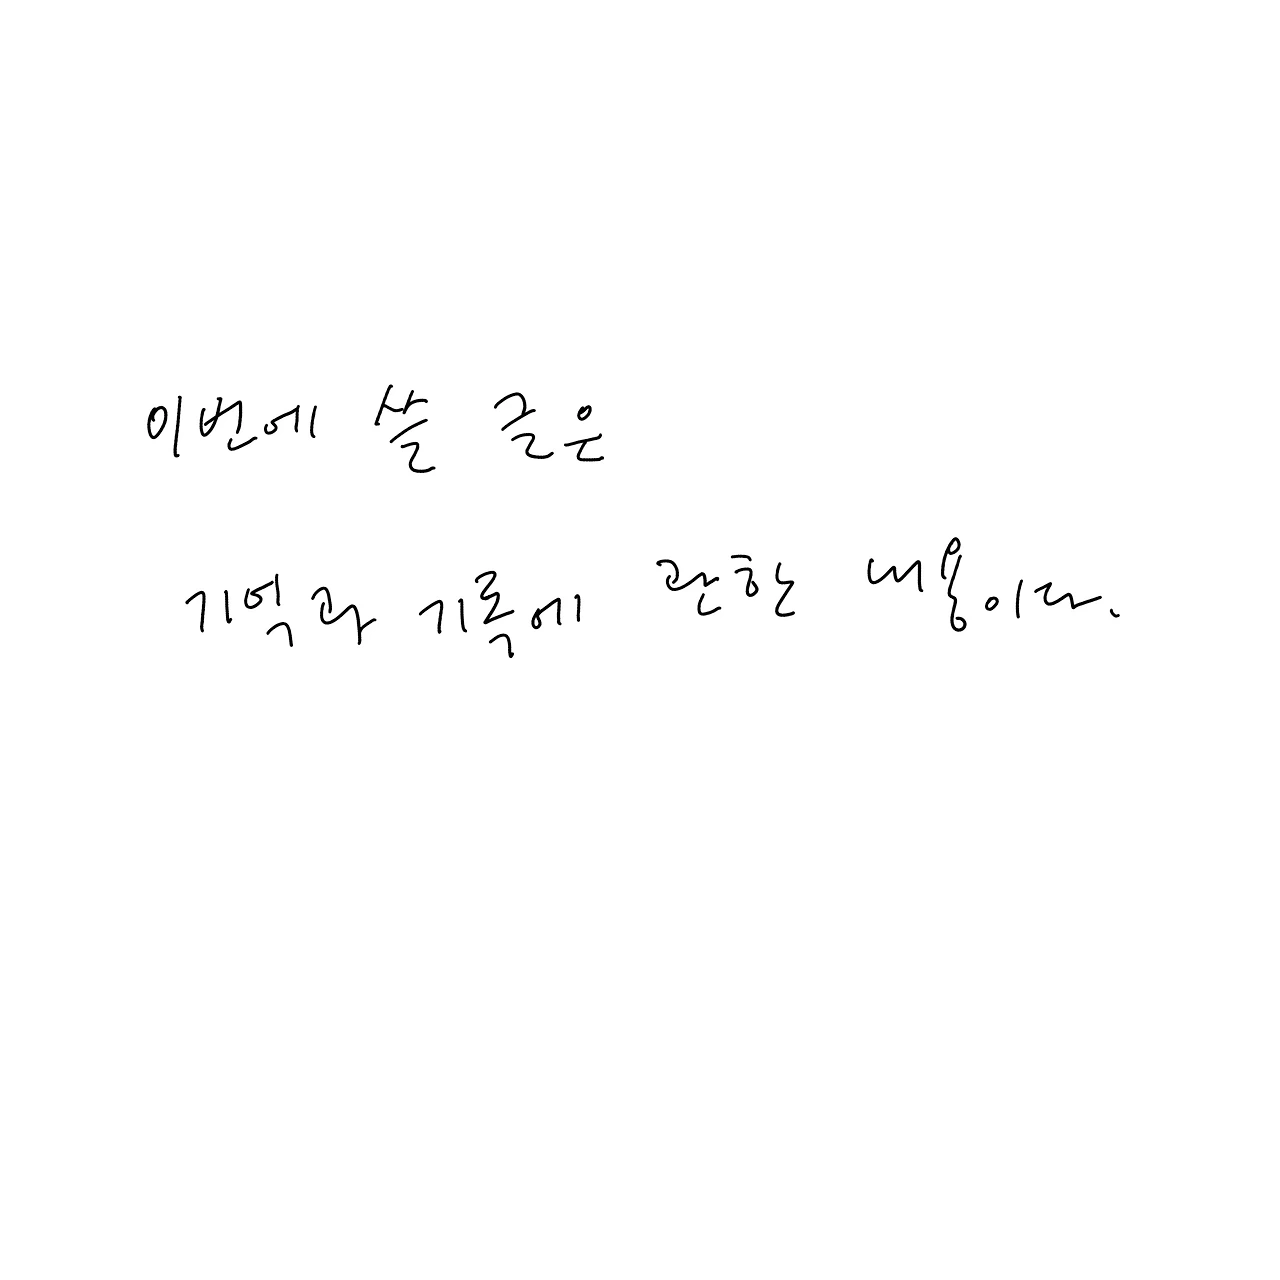 이번에 쓸 글은
기억과 기록에 관한 내용이다.